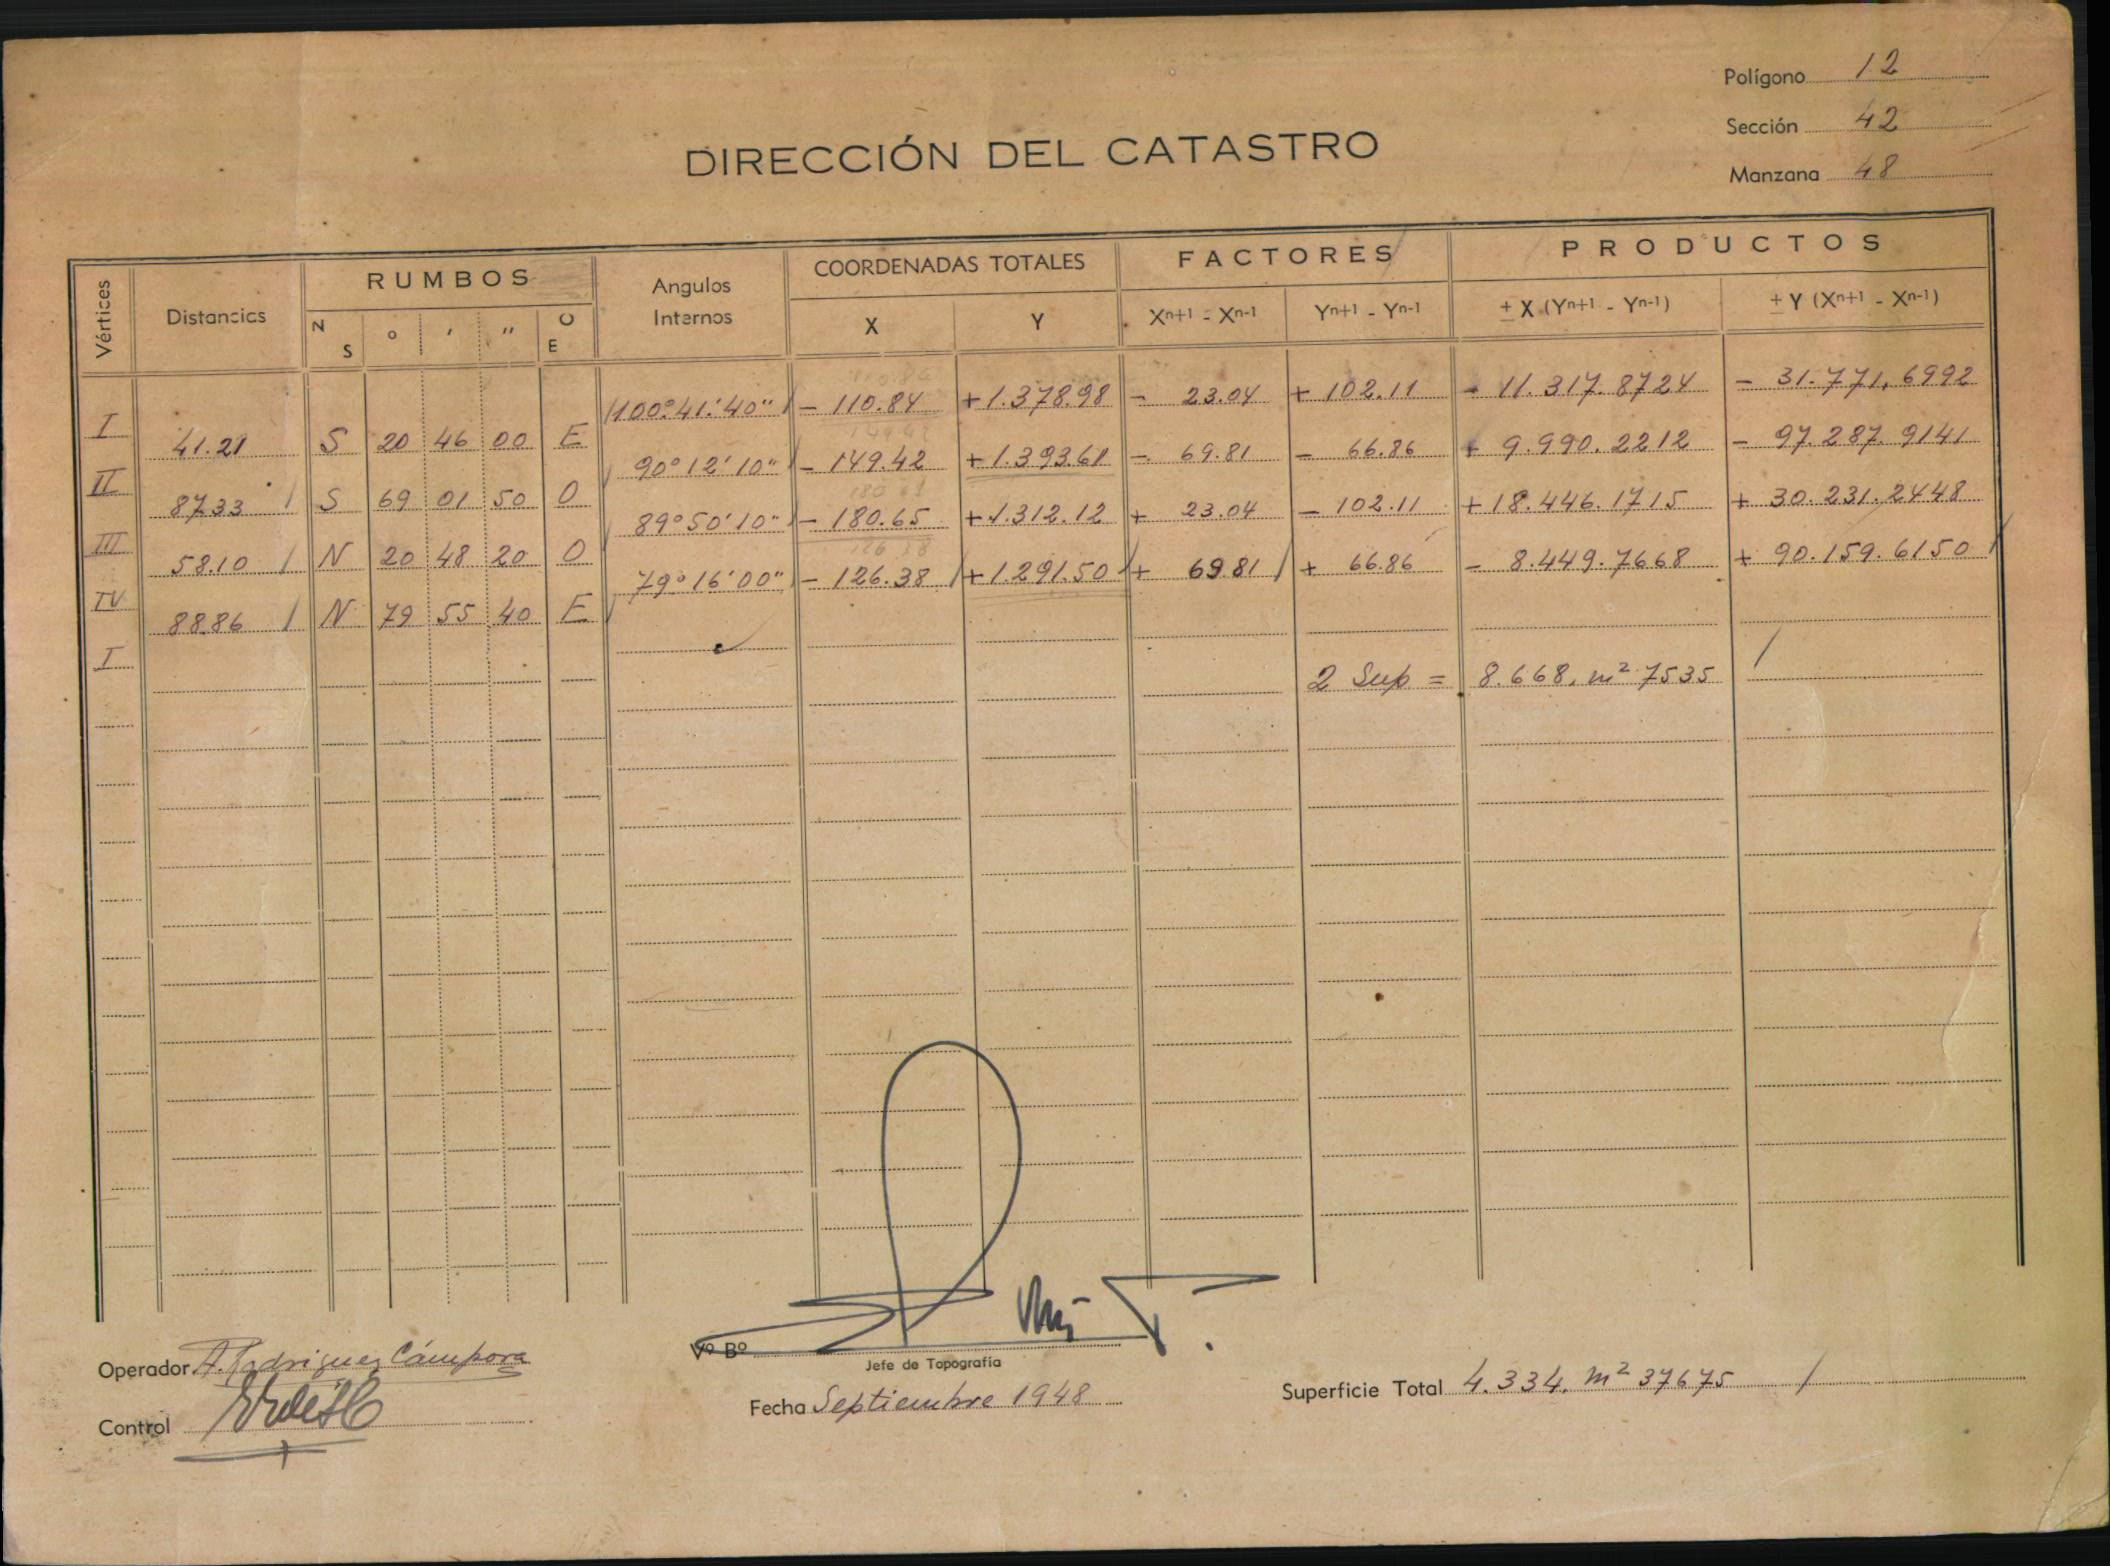 Polígono 12
Sección 42
Manzana 48
DIRECCIÓN DEL CATASTRO
Vértices Distancias RUMBOS Angulos Internos COORDENADAS TOTALES FACTORES PRODUCTOS
N S ° ' " O E X Y Xn+1 - Xn-1 Yn+1 - Yn-1 ± X (Yn+1 - Yn-1) ± Y (Xn+1 - Xn-1)
100°41'40" - 110.84 + 1.378.98 - 23.04 + 102.11 - 11.317.8724 - 31.771,6992
I 41.21 S 20 46 00 E
90°12'10" - 149.42 + 1.393.61 - 69.81 - 66.86 + 9.990.2212 - 97.287.9141
II 87.33 S 69 01 50 O
89°50'10" - 180.65 + 1.312.12 + 23.04 - 102.11 + 18.446.1715 + 30.231.2448
III 58.10 N 20 48 20 O
79°16'00" - 126.38 + 1.291.50 + 69.81 + 66.86 - 8.449.7668 + 90.159.6150
IV 88.86 N 79 55 40 E
I
2 Sup = 8.668. m² 7535
Operador A. Rodriguez Cámpora
Vº Bº
Jefe de Topografía
Control
Fecha Septiembre 1948
Superficie Total 4.334. m² 37675